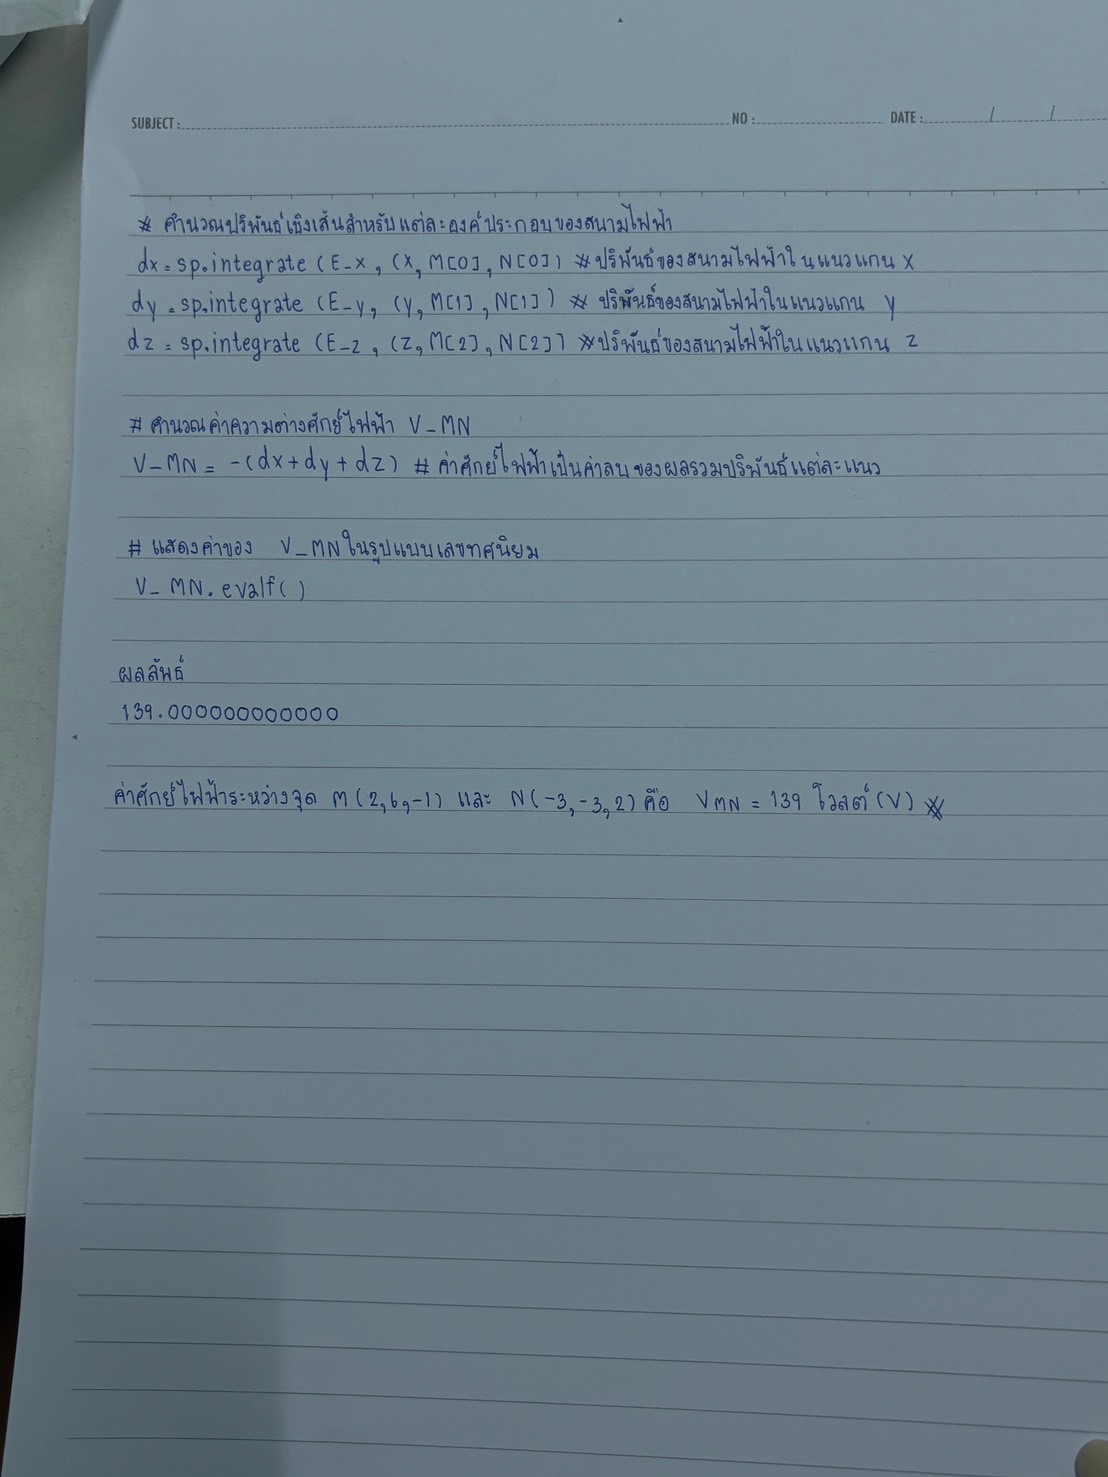 SUBJECT : NO : DATE : / /
* คำนวณปริพันธ์เชิงเส้นสำหรับแต่ละองค์ประกอบของสนามไฟฟ้า
dx = sp.integrate (E_x, (x, M[0], N[0]) * ปริพันธ์ของสนามไฟฟ้าในแนวแกน x
dy = sp.integrate (E_y, (y, M[1], N[1]) * ปริพันธ์ของสนามไฟฟ้าในแนวแกน y
dz = sp.integrate (E_z, (z, M[2], N[2]) * ปริพันธ์ของสนามไฟฟ้าในแนวแกน z
# คำนวณค่าความต่างศักย์ไฟฟ้า V_MN
V_MN = -(dx+dy+dz) # ค่าศักย์ไฟฟ้าเป็นค่าลบของผลรวมปริพันธ์แต่ละแนว
# แสดงค่าของ V_MN ในรูปแบบเลขทศนิยม
V_MN.evalf()
ผลลัพธ์
139.000000000000
ค่าศักย์ไฟฟ้าระหว่างจุด M(2,6,-1) และ N(-3,-3,2) คือ VMN = 139 โวลต์ (V) *